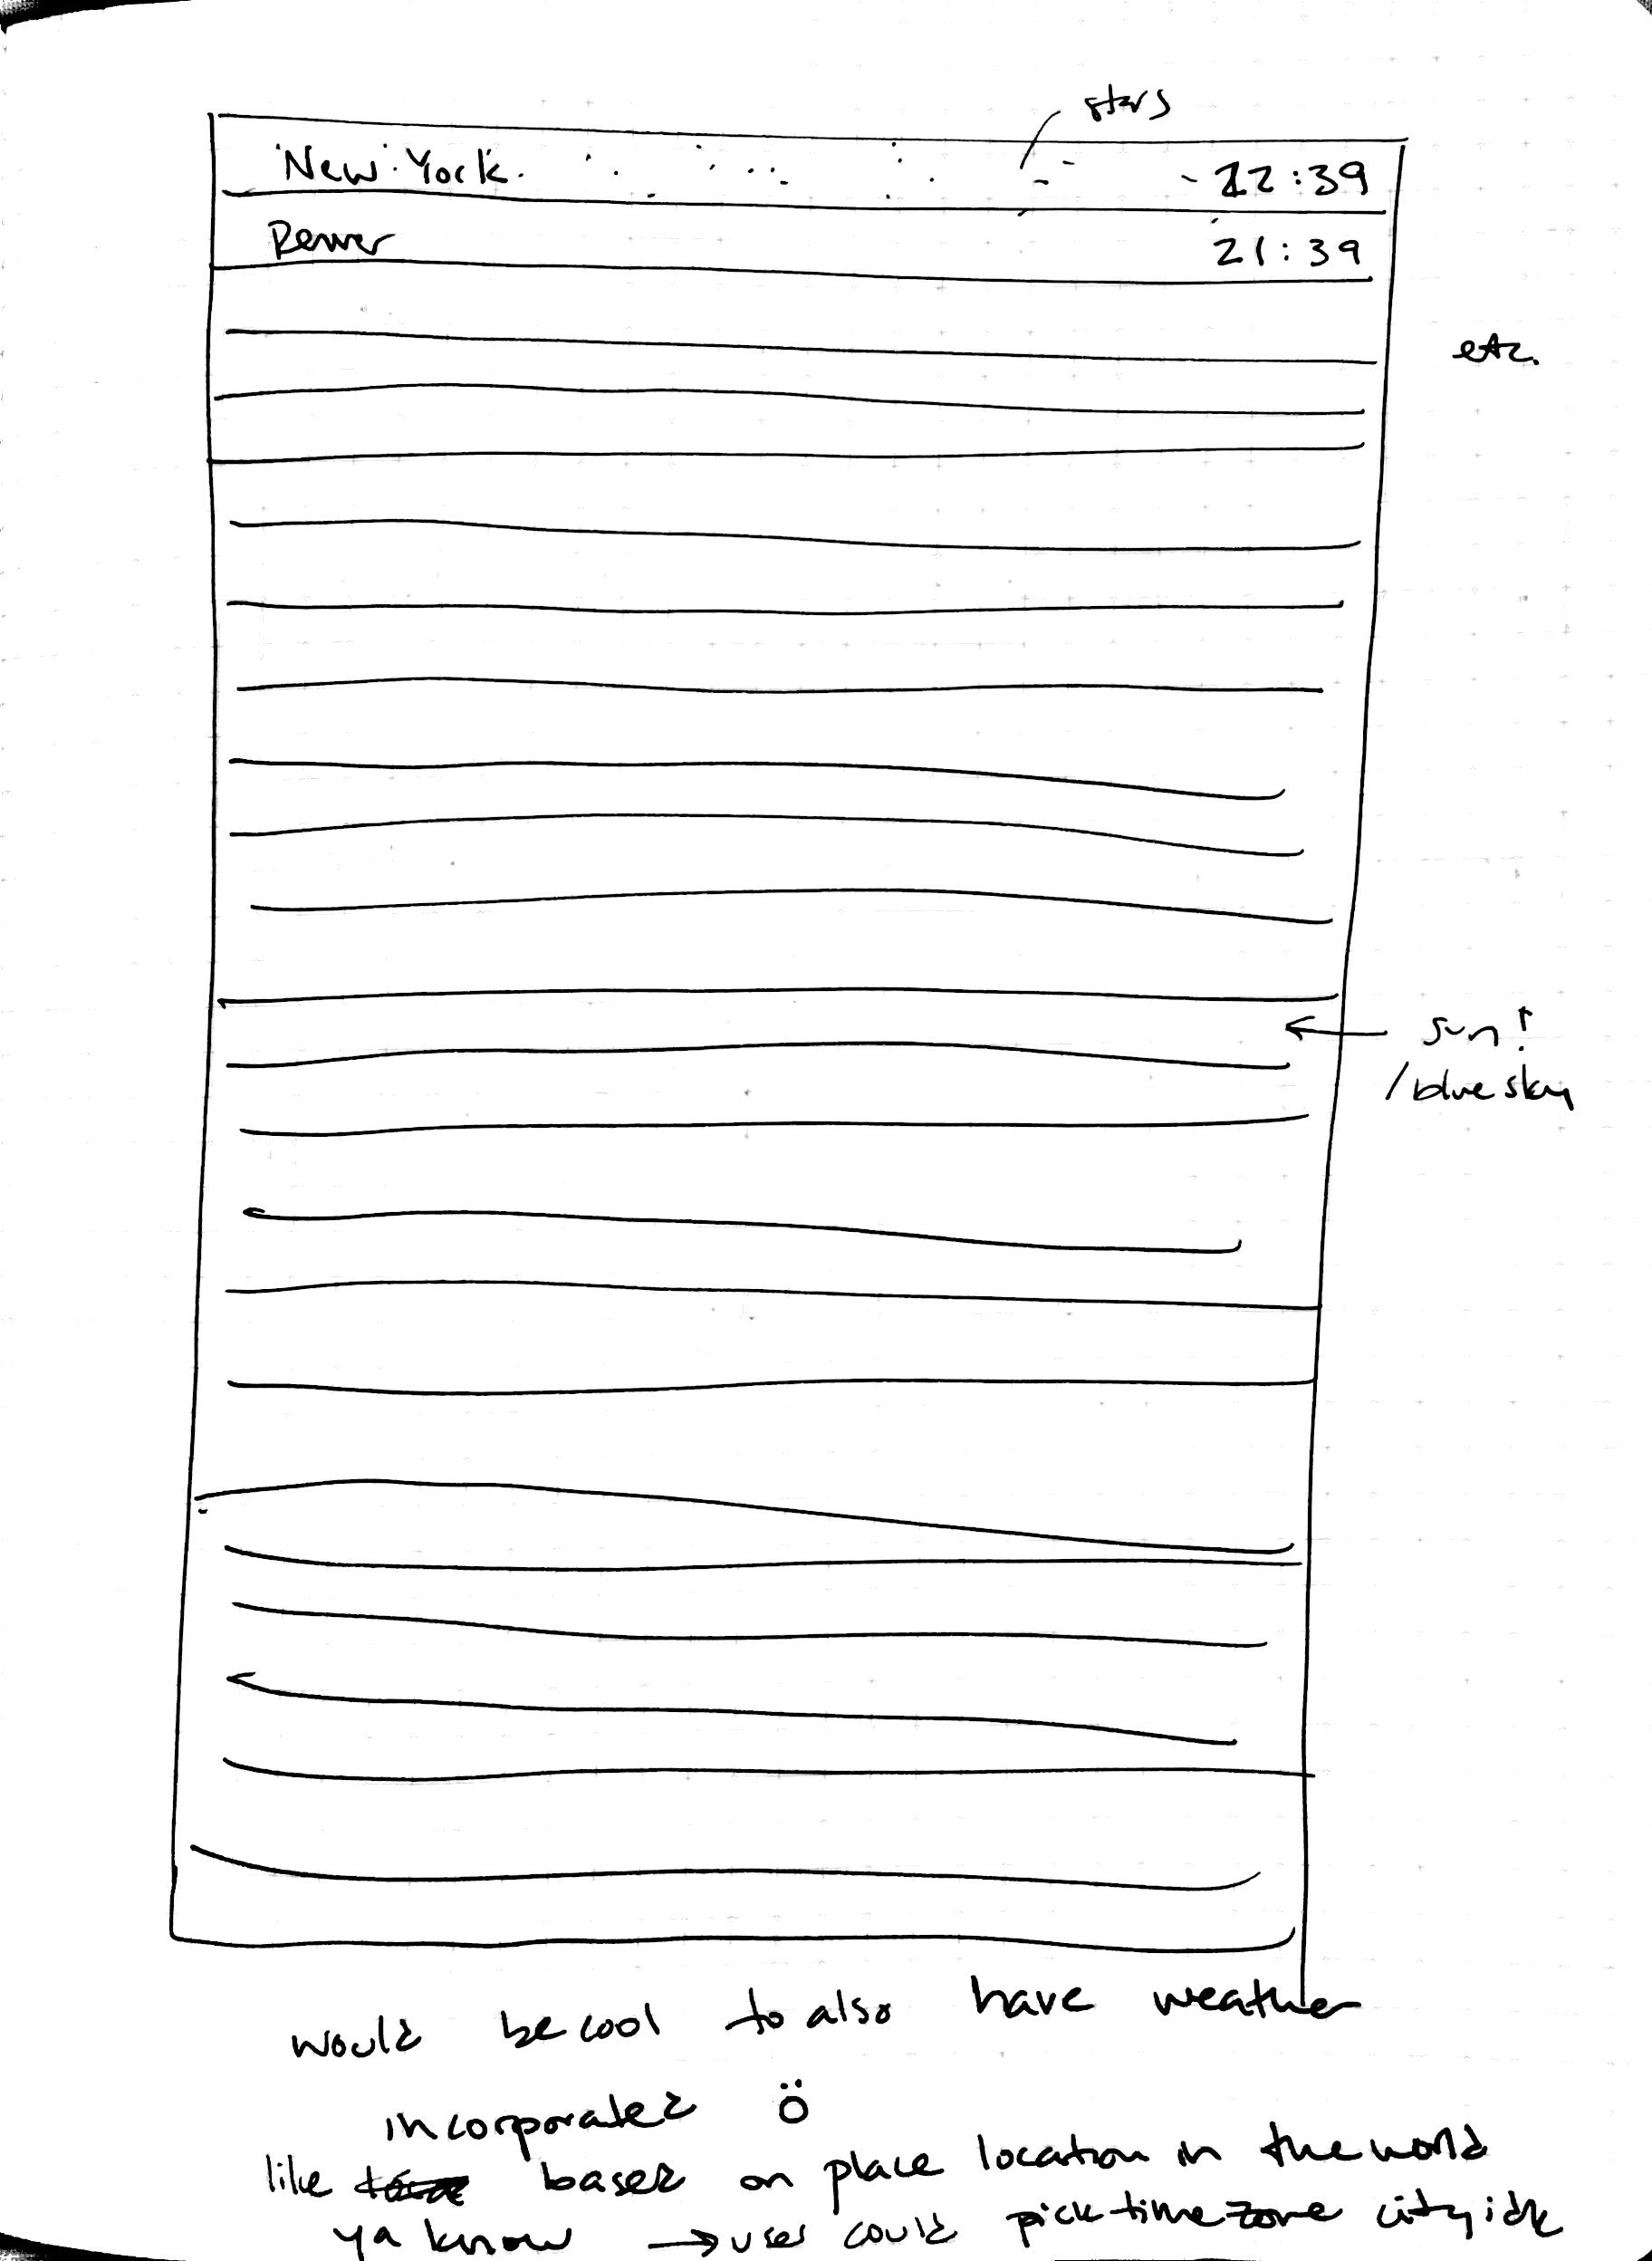 stars
New York. 22:39
Denver 21:39
etc.
sun!
/blue sky
would be cool to also have weather
incorporated ö
like based on place location in the world
ya know → user could pick time zone city idk